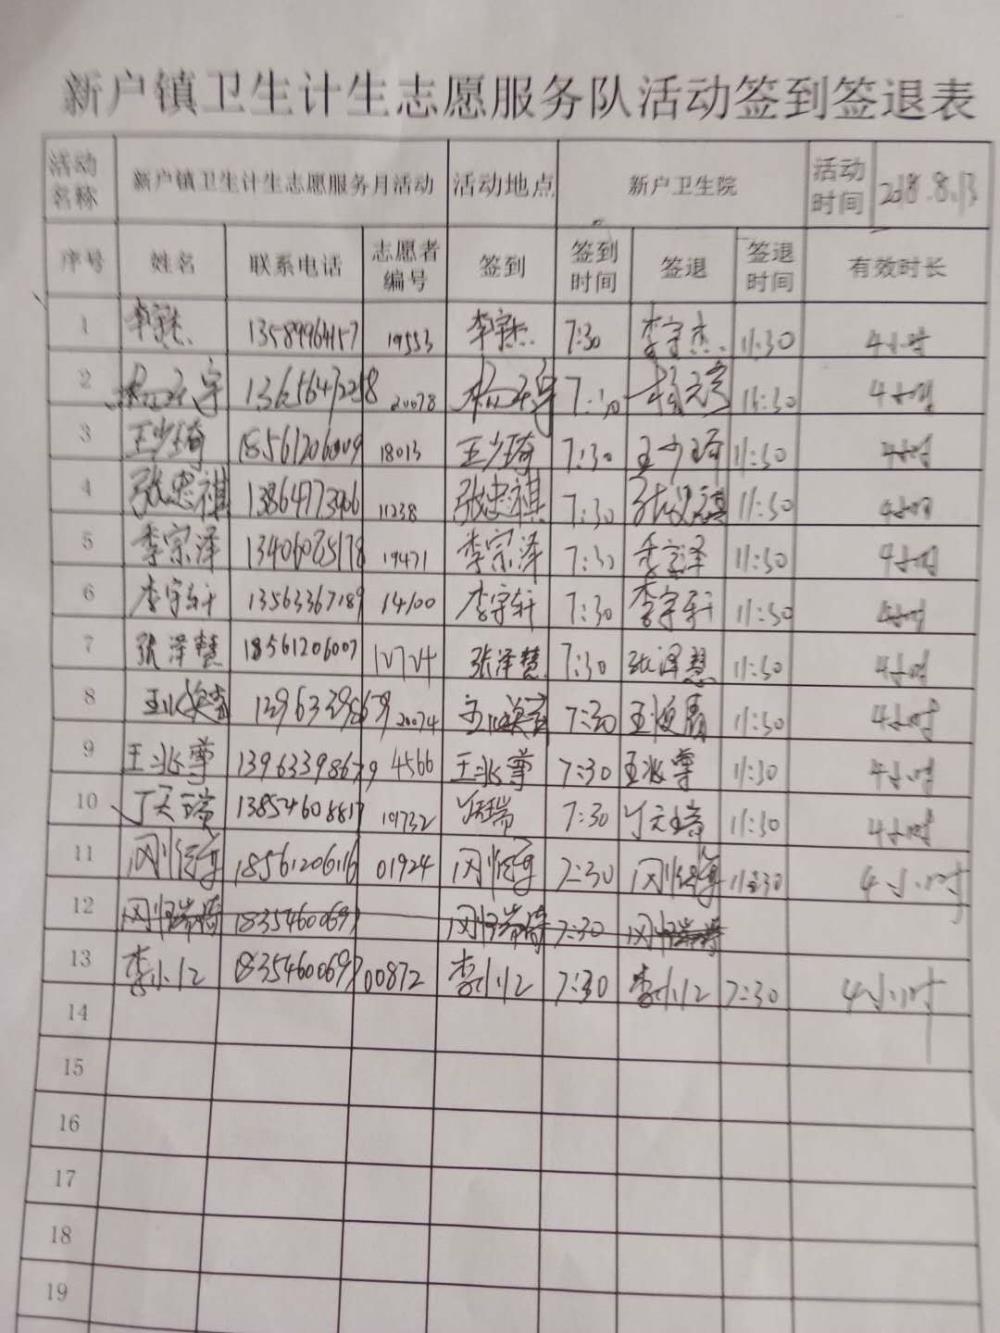 新户镇卫生计生志愿服务队活动签到签退表
活动名称 新户镇卫生计生志愿服务月活动 活动地点 新户卫生院 活动时间 2018.8.13
序号 姓名 联系电话 志愿者编号 签到 签到时间 签退 签退时间 有效时长
1 李宇杰 13589964157 19553 李宇杰 7:30 李宇杰 11:30 4小时
2 20078 4小时
3 王少琦 18561206009 18013 王少琦 7:30 王少琦 11:30 4小时
4 张忠祺 11238 张忠祺 7:30 11:30 4小时
5 李宗泽 19471 李宗泽 7:30 李宗泽 11:30 4小时
6 李宇轩 13563367189 14100 李宇轩 7:30 李宇轩 11:30 4小时
7 张泽慧 18561206007 张泽慧 7:30 张泽慧 11:30 4小时
8 20074 7:30 11:30 4小时
9 王兆尊 13963398679 4566 王兆尊 7:30 王兆尊 11:30 4小时
10 丁天瑞 13854608817 19732 7:30 11:30 4小时
11 18561206116 01924 7:30 11:30 4小时
12 18354600697 7:30
13 李小江 18354600697 00872 李小江 7:30 李小江 7:30 4小时
14
15
16
17
18
19